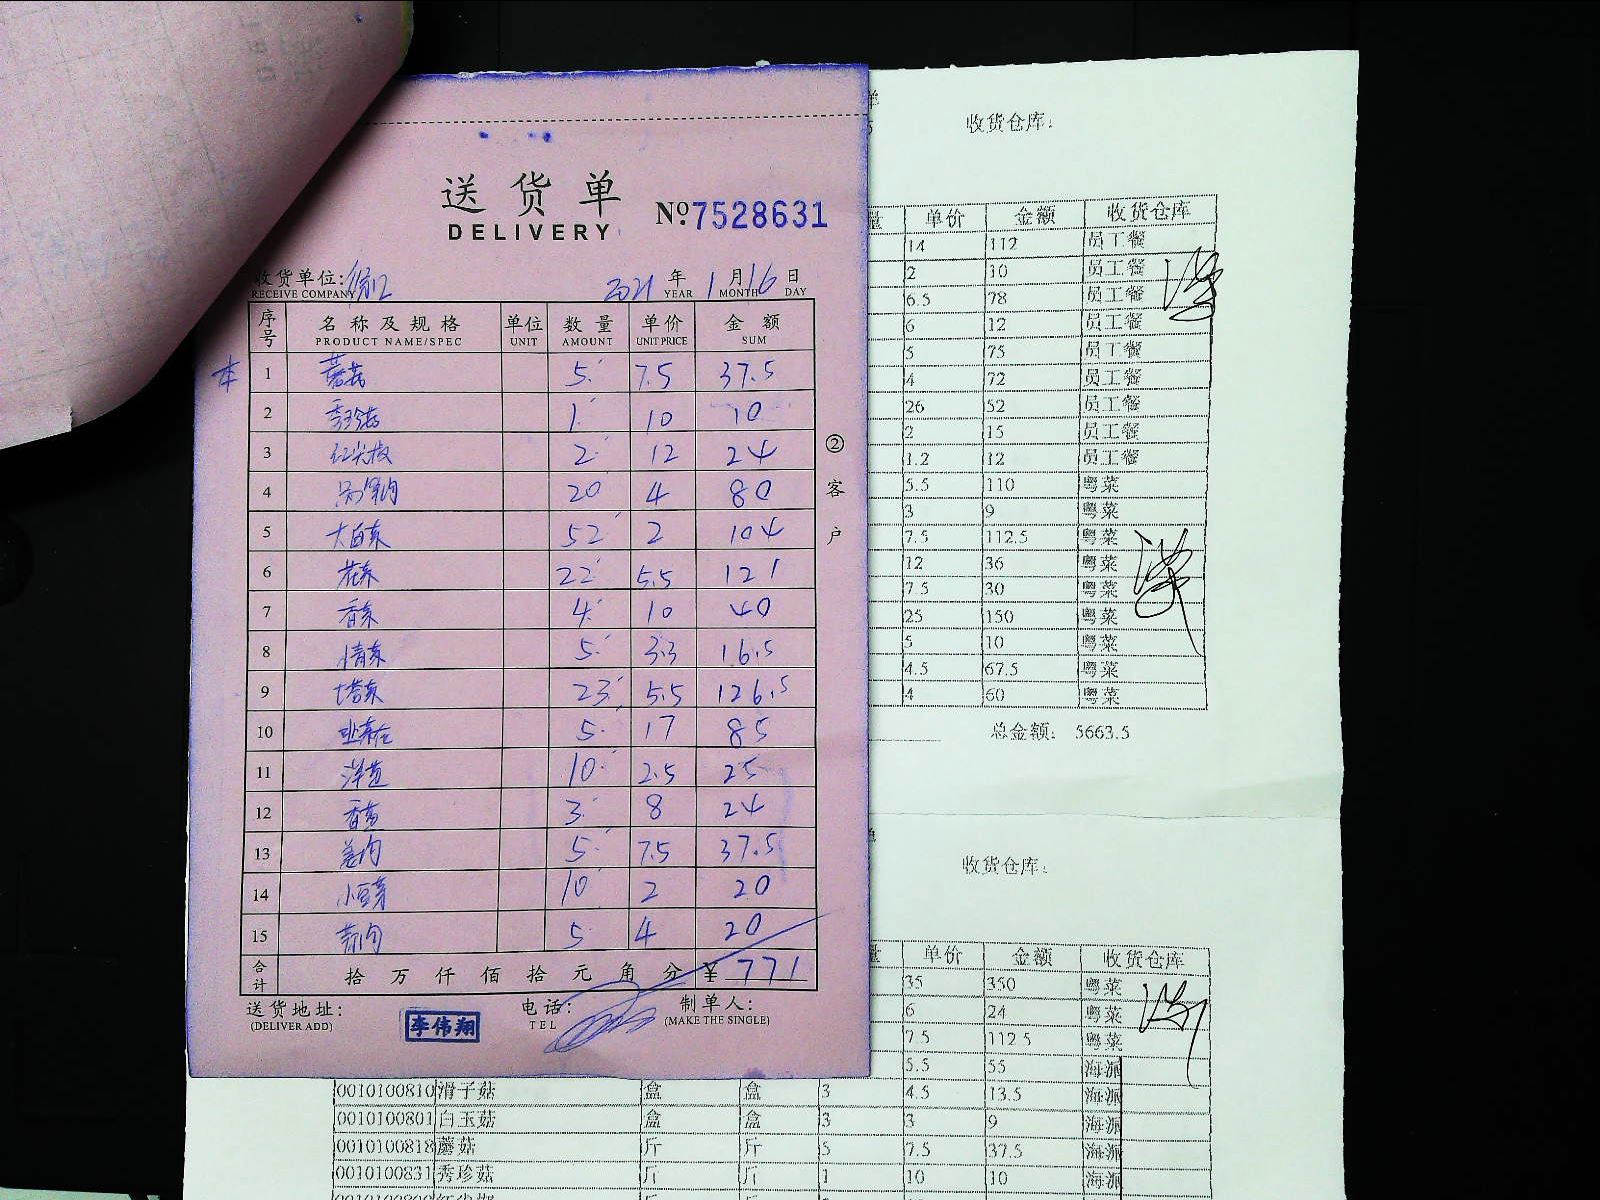 送货单
DELIVERY
№7528631
收货单位:
RECEIVE COMPANY
2021 年 1 月 16 日
YEAR MONTH DAY
序号 名称及规格 单位 数量 单价 金额
PRODUCT NAME/SPEC UNIT AMOUNT UNIT PRICE SUM
本 1 蘑菇 5 7.5 37.5
2 秀珍菇 1 10 10
3 红尖椒 2 12 24
4 20 4 80
5 大白菜 52 2 104
6 花菜 22 5.5 121
7 香菜 4 10 40
8 小青菜 5 3.3 16.5
9 塔菜 23 5.5 126.5
10 5 17 85
11 洋葱 10 2.5 25
12 香葱 3 8 24
13 5 7.5 37.5
14 10 2 20
15 5 4 20
合计 拾 万 仟 佰 拾 元 角 分 ¥ 771
送货地址: 电话: 制单人:
(DELIVER ADD) TEL (MAKE THE SINGLE)
李伟翔
② 客户
收货仓库:
量 单价 金额 收货仓库
14 112 员工餐
2 10 员工餐
6.5 78 员工餐
6 12 员工餐
5 75 员工餐
4 72 员工餐
26 52 员工餐
2 15 员工餐
1.2 12 员工餐
5.5 110 粤菜
3 9 粤菜
7.5 112.5 粤菜
12 36 粤菜
7.5 30 粤菜
25 150 粤菜
5 10 粤菜
4.5 67.5 粤菜
4 60 粤菜
总金额: 5663.5
收货仓库:
量 单价 金额 收货仓库
35 350 粤菜
6 24 粤菜
7.5 112.5 粤菜
5.5 55 海派
0010100810 滑子菇 盒 盒 3 4.5 13.5 海派
0010100801 白玉菇 盒 盒 3 3 9 海派
0010100818 蘑菇 斤 斤 5 7.5 37.5 海派
0010100831 秀珍菇 斤 斤 1 10 10 海派